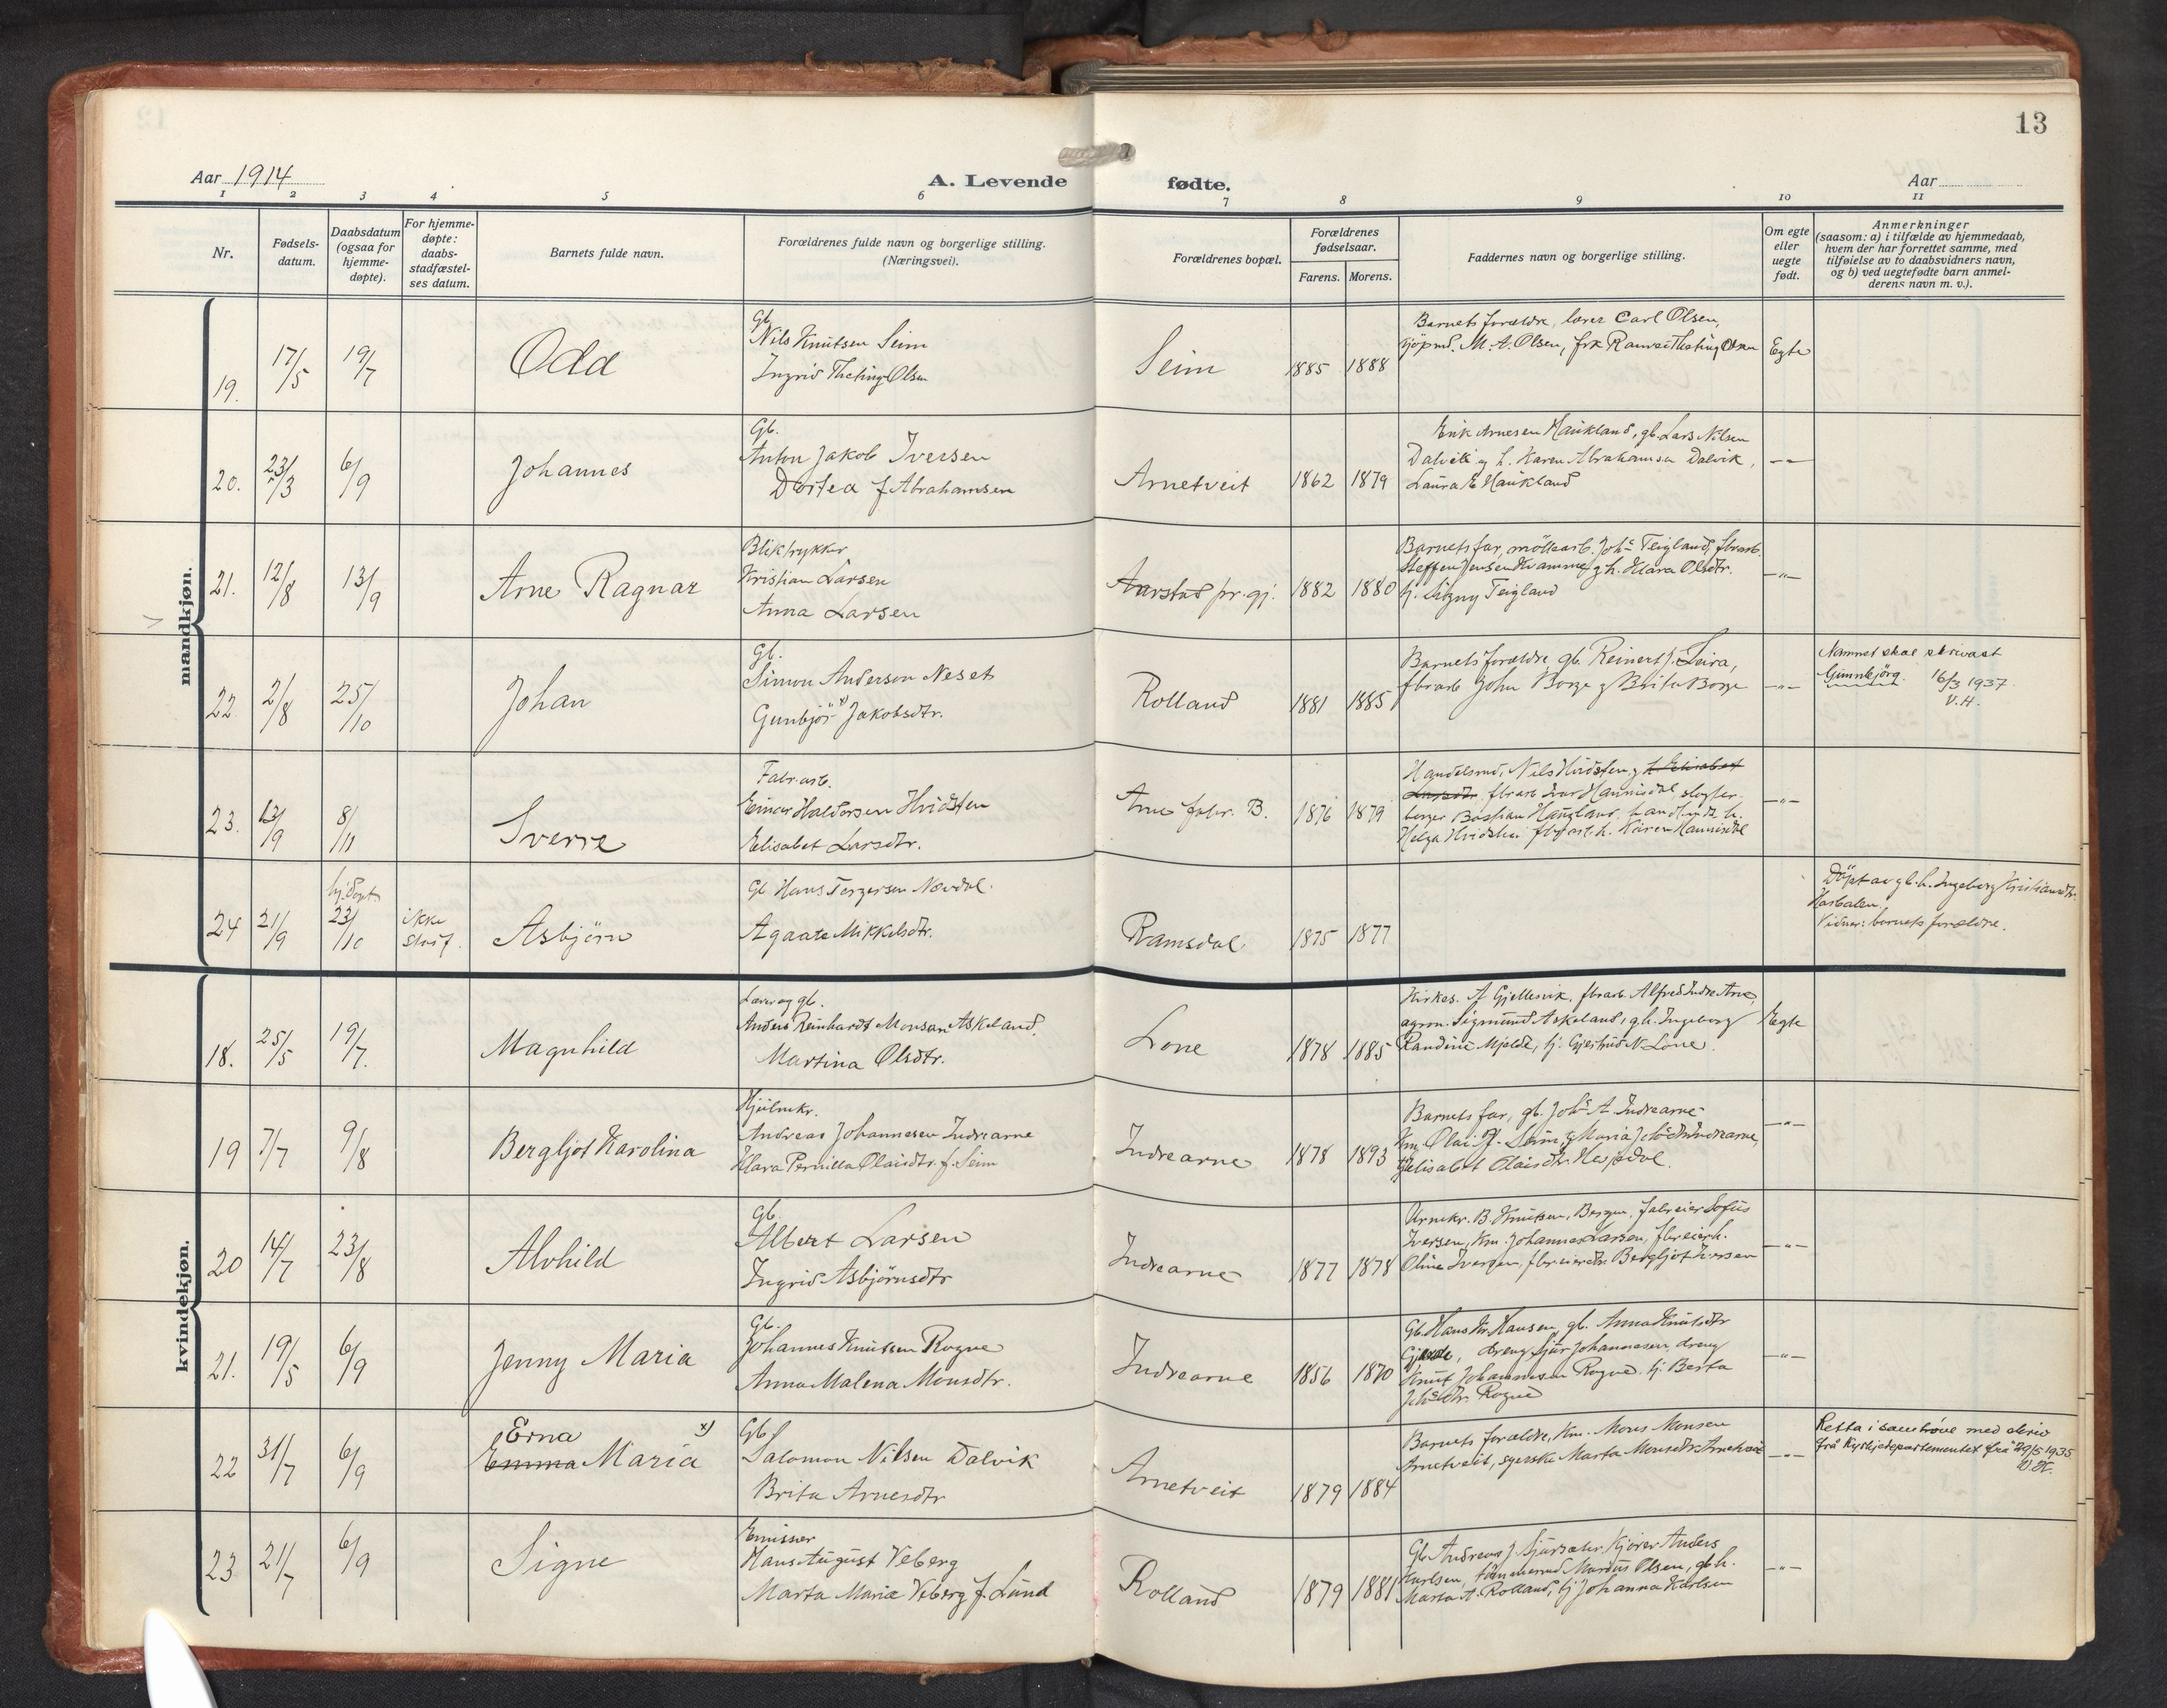 13
Aar 1914
A. Levende fødte.
Aar
1 2 3 4 5 6 7 8 9 10 11
Nr.
Fødsels-
datum.
Daabsdatum
(ogsaa for
hjemme-
døpte).
For hjemme-
døpte:
daabs-
stadfæstel-
ses datum.
Barnets fulde navn.
Forældrenes fulde navn og borgerlige stilling.
(Næringsvei).
Forældrenes bopæl.
Forældrenes
fødselsaar.
Farens. Morens.
Faddernes navn og borgerlige stilling.
Om egte
eller
uegte
født.
Anmerkninger
(saasom: a) i tilfælde av hjemmedaab,
hvem der har forrettet samme, med
tilføielse av to daabsvidners navn,
og b) ved uegtefødte barn anmel-
derens navn m. v.).
mandkjøn.
19. 17/5 19/7 Odd
Gb.
Nils Knutsen Seim
Ingrid Theting Olsen
Seim 1885 1888
Barnets forældre, lærer Carl Olsen,
kjøpmd. M. A. Olsen, frk Theting Olsen
Egte
20. 23/3 6/9 Johannes
Gb.
Anton Jakob Iversen
Dortea f Abrahamsen
Arnetveit 1862 1879
Erik Arnesen Haukland, gb. Lars Nilsen
Dalvik og h. Karen Abrahamsen Dalvik,
Laura E Haukland
-"-
21. 12/8 13/9 Arne Ragnar
Bliktrykker
Kristian Larsen
Anna Larsen
Aarstad pr. gj. 1882 1880
Barnets far, møllearb. Johs Teigland, fbrarb.
Steffen Jensen Kvamme g h. Klara Olsdtr.
tj. Signy Teigland
-"-
22. 2/8 25/10 Johan
Gb.
Simon Anderson Neset
Gunbjør x) Jakobsdtr.
Rolland 1881 1885
Barnets forældre, gb. Reinert J. Leira,
fbrarb John Borge g Brita Borge
-"-
Namnet skal skrivast
Gunnbjørg. 16/3 1937.
V.H.
23. 13/9 8/11 Sverre
Fabr. arb.
Einar Haldorsen Hvidsten
Elisabet Larsdtr.
Arne fabr. B. 1876 1879
Handelsmd, Nils Hvidsten, g h. Elisabet
Larsdtr. fbrarb Ivar Hannisdal,
Bastian Haugland,
Helga Hvidsten h. Karen Hannisdal
-"-
24 21/9 hj.døpt 23/10 ikke
stadf. Asbjørn
Gb Hans Torgersen Nævdal.
Agaate Mikkelsdtr.
Ramsdal 1875 1877
Døpt av gb. h. Ingeborg Kristiansdtr.
Vidner: barnets forældre.
kvindekjøn.
18. 25/5 19/7. Magnhild
Lærer og gb.
Anders Reinhardt Monsen Askeland.
Martina Olsdtr.
Lone 1878 1885
Kirkes. A Gjellesvik, fbrarb. Alfred Indre Arne,
agron. Sigmund Askeland, g.h. Ingeborg
Randine Mjelde, tj. Gjertrud N. Lone.
Egte
19 7/7 9/8 Bergljot Karolina
Hjulmkr.
Andreas Johannesen Indrearne
Klara Pernilla Olaisdtr. f. Seim
Indrearne 1878 1893
Barnets far, gb. Johs A. Indrearne
Km. Olai Seim, g Maria Indrearne,
Elisabet Olaisdtr. Hesjedal.
-"-
20 14/7 23/8 Alvhild
Gb.
Albert Larsen
Ingrid Asbjørnsdtr
Indrearne 1877 1878
Urmkr. B. Knutsen, Bergen, fabreier Sofus
Iversen, Km. Johannes Larsen, fbreierh.
Oline Iversen, fbreierdtr. Bergljot Iversen
-"-
21. 19/5 6/9 Jenny Maria
Gb.
Johannes Knutsen Rogne
Anna Malena Monsdtr.
Indrearne 1856 1870
Gb. Hans Kr. Hansen, gb. Anna Knutsdtr
Gjerde, dreng Sjur Johannesen, dreng
Knut Johannesen Rogne, tj. Berta
Johsdtr. Rogne
-"-
22 31/7 6/9 Erna
Emma Maria x)
Gb.
Salomon Nilsen Dalvik
Brita Arnesdtr
Arnetveit 1879 1884
Barnets forældre, Km. Mons Monsen
Arnetveit, syerske Marta Monsdtr. Arnetveit
-"-
Retta i samhøve med skriv
frå Kyrkjedepartementet frå 29/5 1935
V.H.
23. 21/7 6/9 Signe
Emissær
Hans August Veberg
Marta Marie Veberg f. Lund
Rolland 1879 1881
Gb. Andreas J Sjursæter, Kjører Anders
Karlsen, tømmermd Mardus Olsen, gb.h.
Marta A. Rolland, tj Johanna Karlsen
-"-